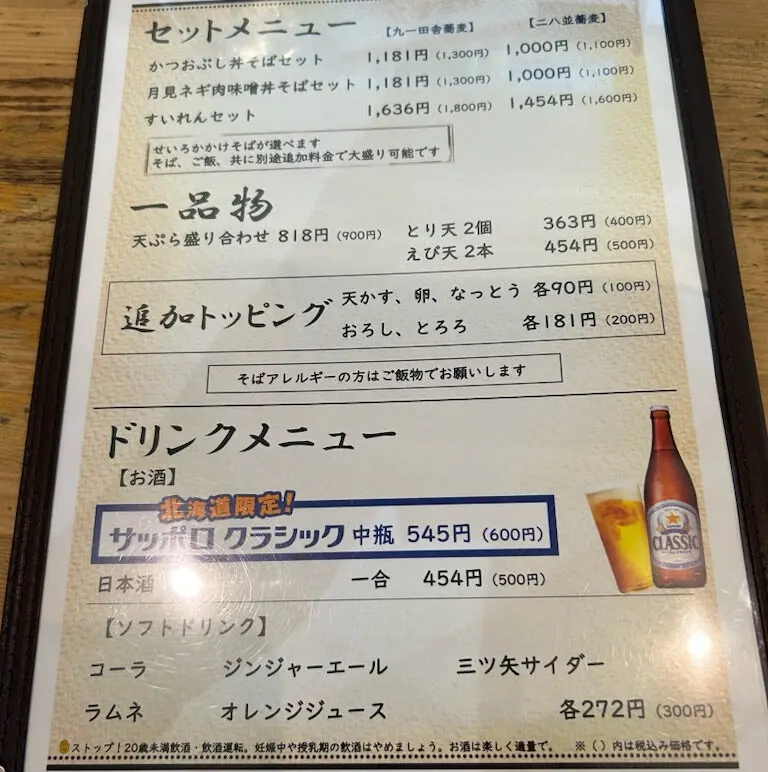 セットメニュー 【九一田舎蕎麦】 【二八並蕎麦】
かつおぶし丼そばセット 1,181円(1,300円) 1,000円(1,100円)
月見ネギ肉味噌丼そばセット 1,181円(1,300円) 1,000円(1,100円)
すいれんセット 1,636円(1,800円) 1,454円(1,600円)
せいろかかけそばが選べます
そば、ご飯、共に別途追加料金で大盛り可能です
一品物
天ぷら盛り合わせ 818円(900円) とり天 2個 363円(400円)
えび天 2本 454円(500円)
追加トッピング
天かす、卵、なっとう 各90円(100円)
おろし、とろろ 各181円(200円)
そばアレルギーの方はご飯物でお願いします
ドリンクメニュー
【お酒】
北海道限定!
サッポロ クラシック 中瓶 545円(600円)
CLASSIC
日本酒 一合 454円(500円)
【ソフトドリンク】
コーラ ジンジャーエール 三ツ矢サイダー
ラムネ オレンジジュース 各272円(300円)
ストップ!20歳未満飲酒・飲酒運転。妊娠中や授乳期の飲酒はやめましょう。お酒は楽しく適量で。 ※()内は税込み価格です。